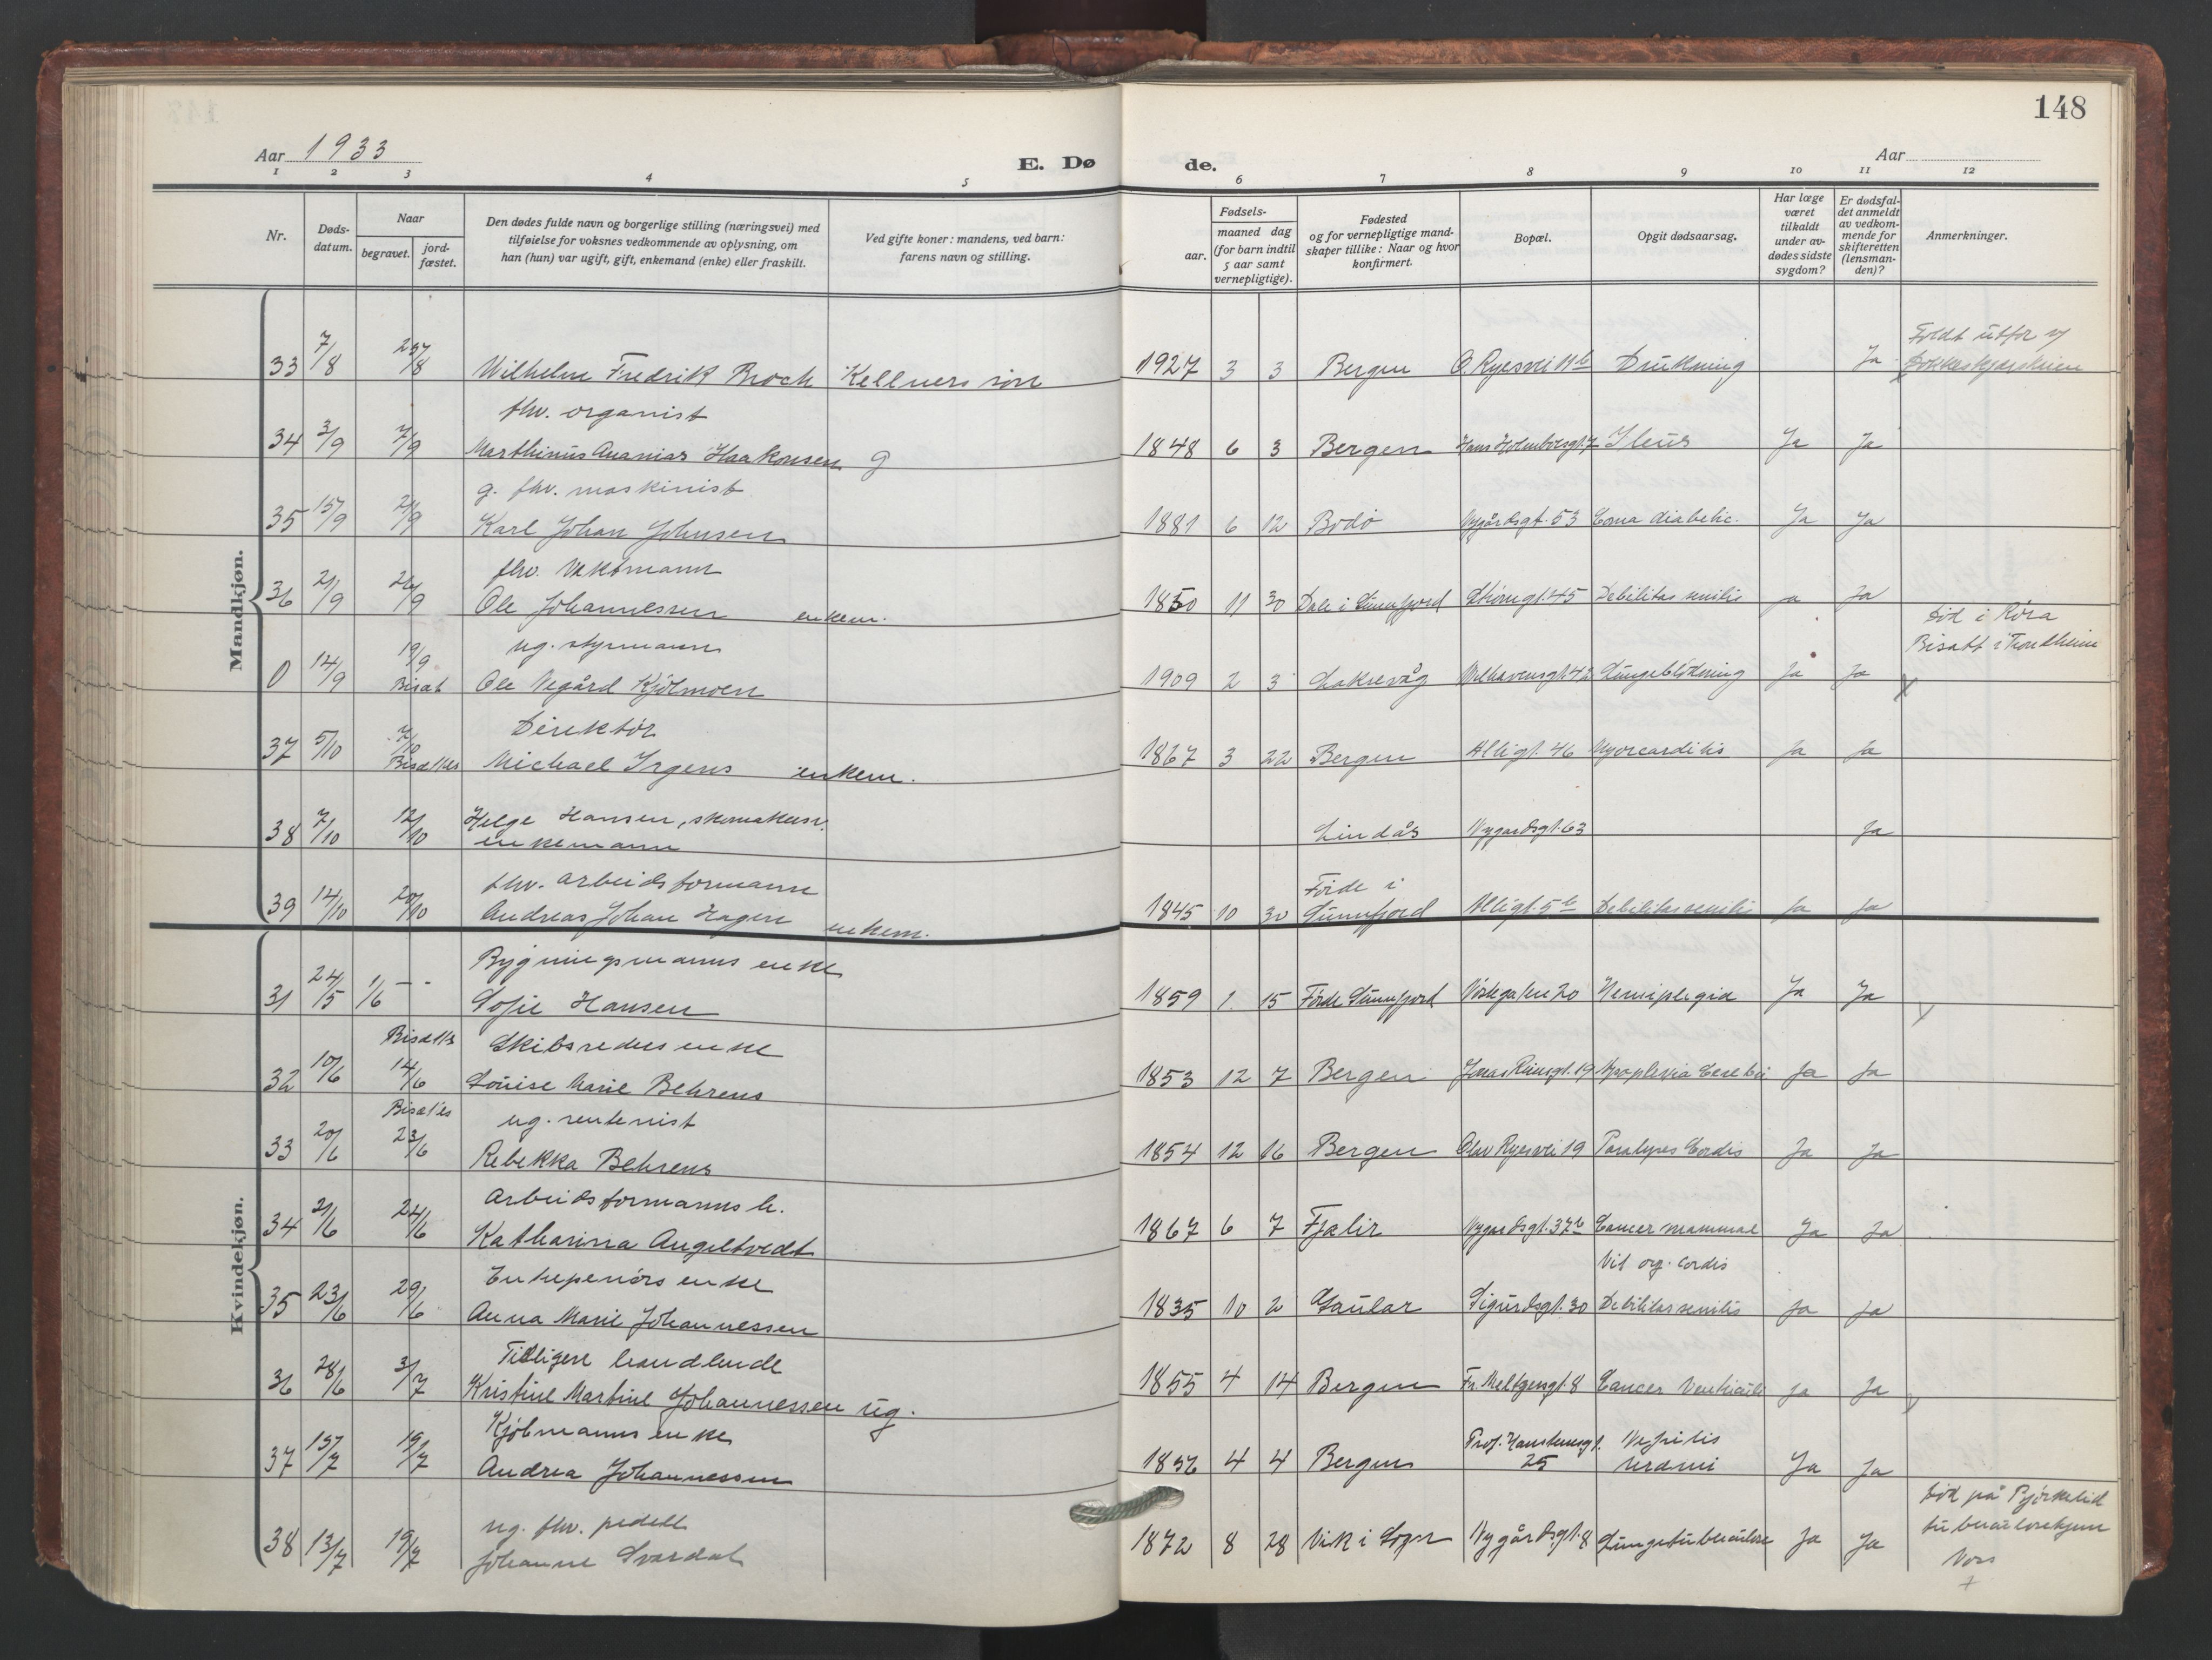 148
Aar 1933
E. Dø
de.
Aar
1 2 3 4 5 6 7 8 9 10 11 12
Nr.
Døds-
datum.
Naar
begravet.
jord-
fæstet.
Den dødes fulde navn og borgerlige stilling (næringsvei) med
tilføielse for voksnes vedkommende av oplysning, om
han (hun) var ugift, gift, enkemand (enke) eller fraskilt.
Ved gifte koner: mandens, ved barn:
farens navn og stilling.
Fødsels-
aar.
maaned dag
(for barn indtil
5 aar samt
vernepligtige).
Fødested
og for vernepligtige mand-
skaper tillike: Naar og hvor
konfirmert.
Bopæl.
Opgit dødsaarsag.
Har læge
været
tilkaldt
under av-
dødes sidste
sygdom?
Er dødsfal-
det anmeldt
av vedkom-
mende for
skifteretten
(lensman-
den)?
Anmerkninger.
Mandkjøn.
33 7/8 Wilhelm Fredrik Broch Kellners søn 1927 3 3 Bergen O. Ryesvei 11b Drukning Ja
34 3/9 7/9 fhv. organist
Marthinus Ananias Haakonsen g 1848 6 3 Bergen Hans Holmboesgt. 7 Ileus Ja Ja
35 15/9 21/9 g. fhv. maskinist
Karl Johan Johnsen 1881 6 12 Bodö Nygårdsgt. 53 Coma diabetic. Ja Ja
36 21/9 26/9 fhv. Vaktmann
Ole Johannessen enkem. 1850 11 30 Dale i Sunnfjord 45 Debilitas senilis ja Ja
0 14/9 19/9 Bisat ug. styrmann
Ole Vegård Kjölmoen 1909 2 3 Laksevåg Welhavensgt. 42 Lungeblödning Ja Ja
Död i Röra
Bisatt i Trondheim
37 5/10 7/10 Direktör
Michael Irgens enkem. 1867 3 22 Bergen Allégt. 46 Myocarditis Ja Ja
38 7/10 12/10 Helge Hansen, skomaker.
enkemann Lindås Nygårdsgt. 63 Ja
39 14/10 20/10 fhv. arbeidsformann
Andreas Johan Hagen enkem. 1845 10 30 Förde i
Sunnfjord Allégt. 5b Debilitas senilis Ja Ja
Kvindekjøn.
31 24/5 1/6 - - Bygningsmanns enke
Sofie Hansen 1859 1 15 Förde Sunnfjord 20 Hemiplegia Ja Ja
32 10/6 14/6 Skibsreders enke
Louise Marie Behrens 1853 12 7 Bergen Jonas Reinsgt. 19 Apoplexia Cerebri Ja Ja
33 20/6 23/6 ug. rentenist
Rebekka Behrens 1854 12 16 Bergen Olav Ryesvei 19 Paralyses Cordis Ja Ja
34 21/6 24/6 Arbeidsformanns h.
Katharina Angeltvedt 1867 6 7 Fjalir Nygårdsgt. 37b Cancer mammae Ja Ja
35 23/6 29/6 Entreprenörs enke
Anna Marie Johannessen 1835 10 2 Gaular Sigurdsgt. 30 Vit org. cordis
Debilitas senilis Ja Ja
36 28/6 3/7 Tidligere handlende
Kristine Martine Johannessen ug. 1855 4 14 Bergen Fr. Meltzersgt. 8 Cancer Ventriculi ja Ja
37 15/7 19/7 Kjöbmanns enke
Andrea Johannessen 4 4 Bergen Prof. Hansteensgt.
25 Nefritis
Ja Ja
38 13/7 19/7 ug. fhv. pedell
Johanne Svardal 1872 8 28 Vik i Sogn Nygårdsgt. 8 Lungetuberkulose Ja Ja
Död på Bjørkelid
Voss